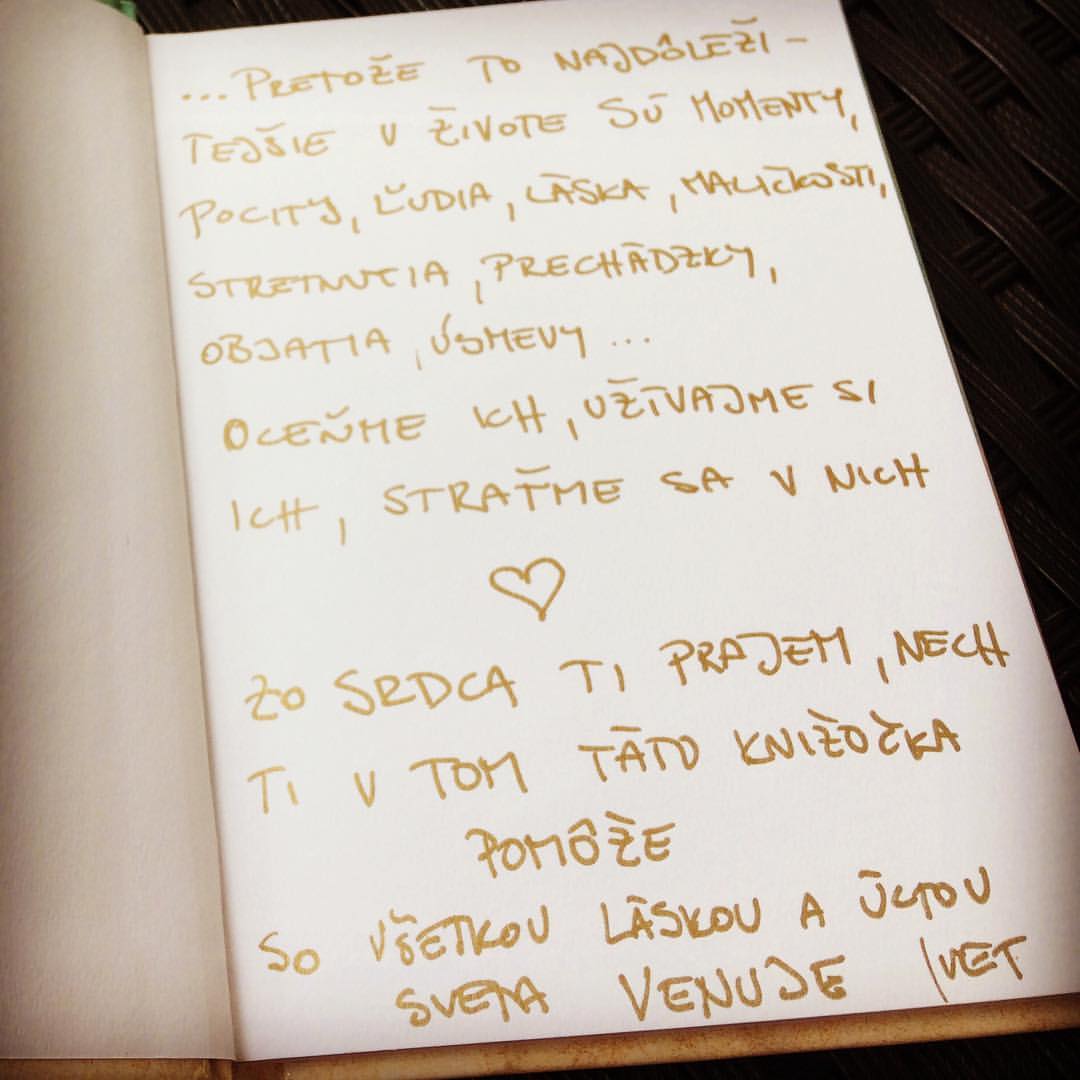 ...PRETOŽE TO NAJDÔLEŽI-
TEJŠIE V ŽIVOTE SÚ MOMENTY,
POCITY, ĽUDIA, LÁSKA, MALIČKOSTI,
STRETNUTIA, PRECHÁDZKY,
OBJATIA, ÚSMEVY...
OCEŇME ICH, UŽÍVAJME SI
ICH, STRAŤME SA V NICH
♡
ZO SRDCA TI PRAJEM, NECH
TI V TOM TÁTO KNIŽOČKA
POMÔŽE
SO VŠETKOU LÁSKOU A ÚCTOU
SVETA VENUJE IVET